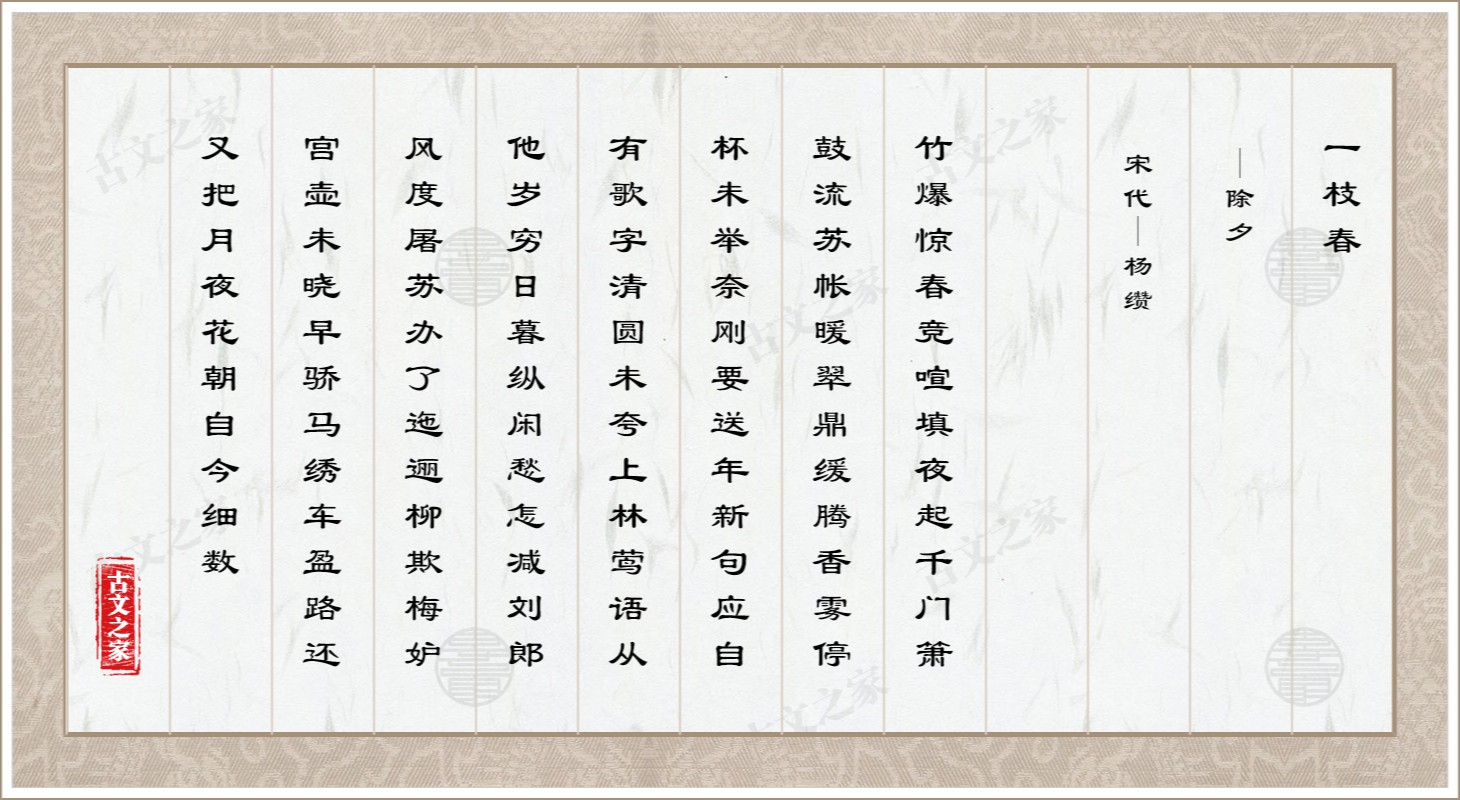 一枝春
—除夕
宋代—杨缵
竹爆惊春竞喧填夜起千门箫
鼓流苏帐暖翠鼎缓腾香雾停
杯未举奈刚要送年新句应自
有歌字清圆未夸上林莺语从
他岁穷日暮纵闲愁怎减刘郎
风度屠苏办了迤逦柳欺梅妒
宫壶未晓早骄马绣车盈路还
又把月夜花朝自今细数
古文之家